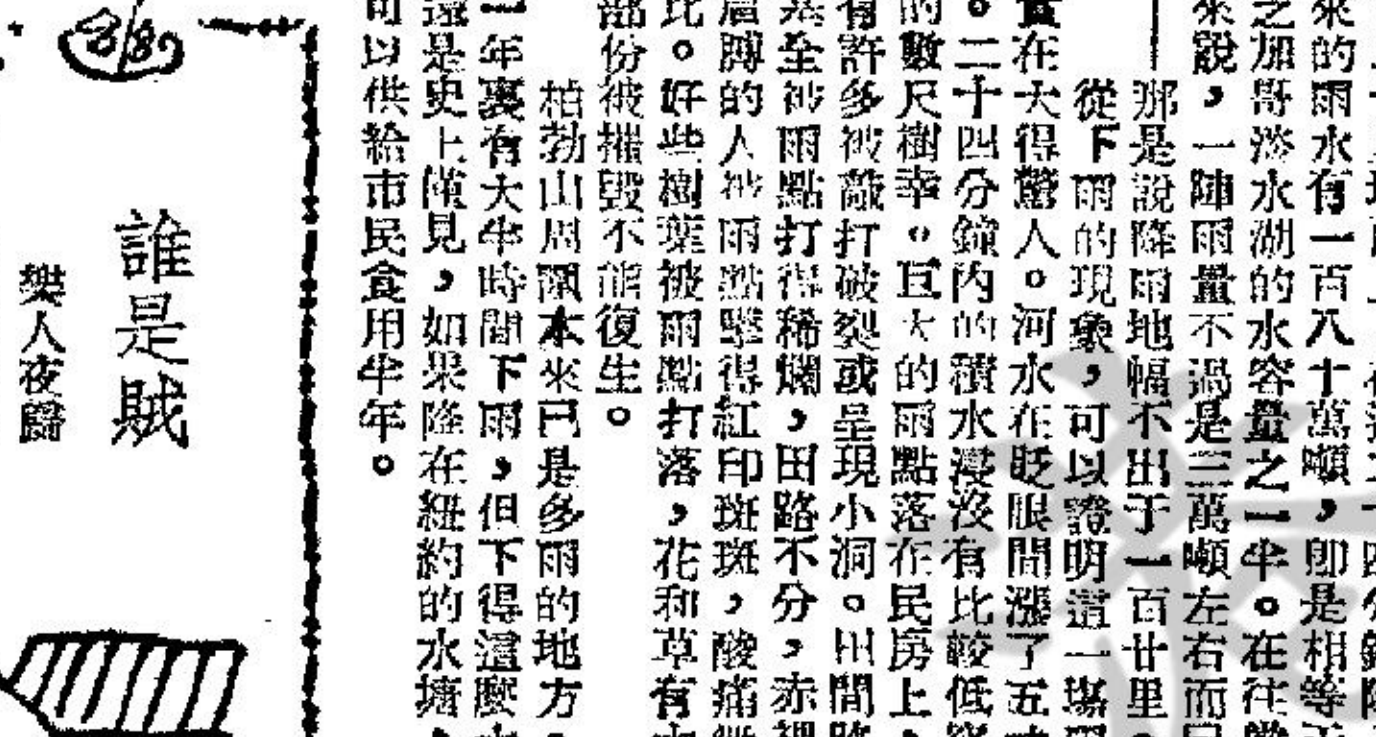 來的雨水有一百八十萬噸，卽是相等
之加哥淡水湖的水容量之一半。在往
來說，一陣雨量不過是三萬噸左右而
那是說降雨地幅不出于一百廿里
從下雨的現象，可以證明這一塲
實在大得驚人。河水在眨眼間漲了五
。二十四分鐘內的積水浸沒有比較低
的數尺樹幸。巨大的雨點落在民房上，
有許多被敲打破裂或呈現小洞。田間
全被雨點打得稀爛，田路不分，赤裸
膊的人被雨點擊得紅印斑斑，酸痛
比。好些樹葉被雨點打落，花和草有
部份被摧毀不能復生。
柏勃山周圍本來已是多雨的地方，
一年裏有大半時間下雨，但下得這麽
還是史上僅見，如果降在紐約的水塘，
可以供給市民食用半年。
誰是賊
樊人夜